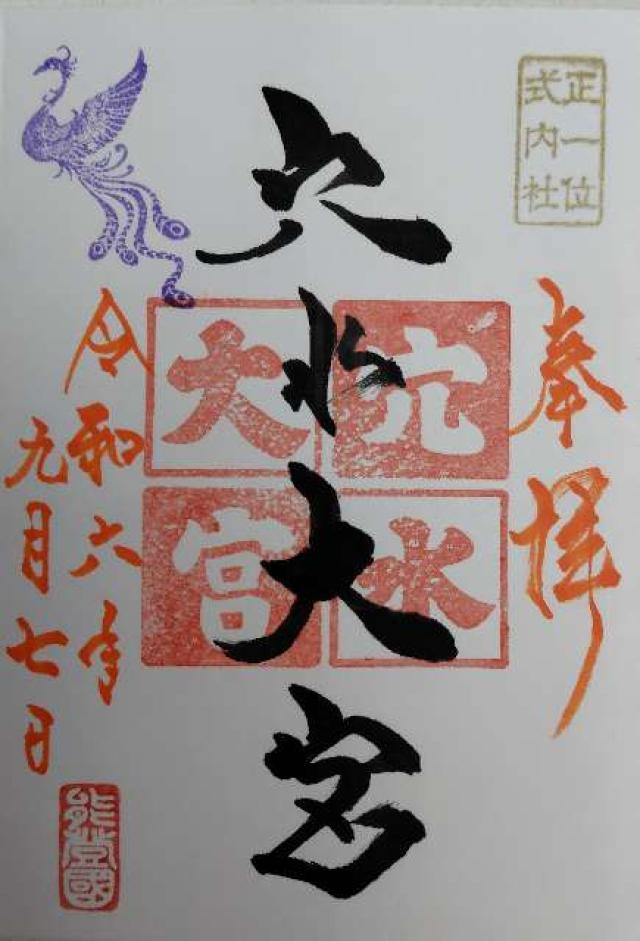 正一位
式内社
奉拝
穴水大宮
穴水
大宮
令和六年
九月七日
能登國